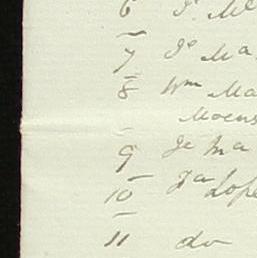 6 Js. Mc
7 Jo Ma
8 Wm Ma
Moens
9 Je Ma
10 Ja Lope
11 do